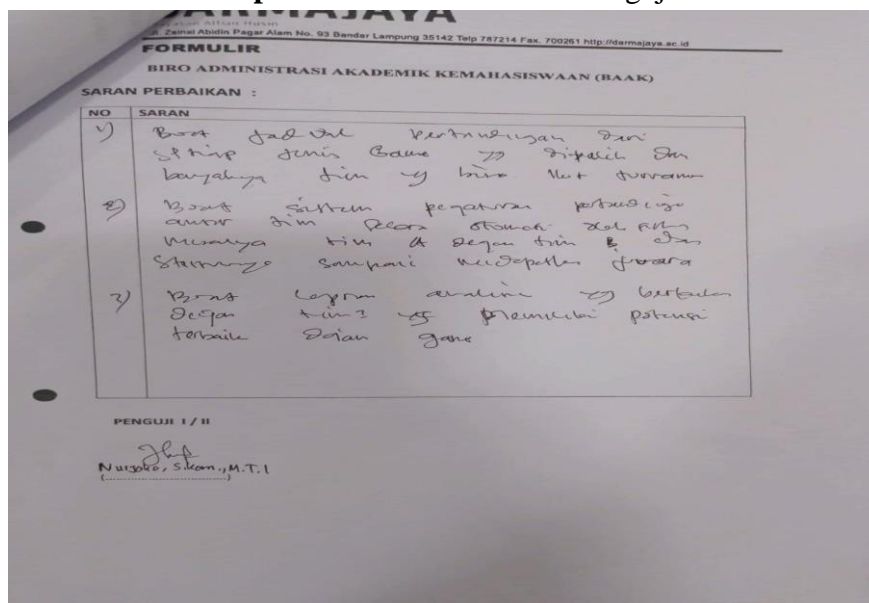 DARMAJAYA
Yayasan Alfian Husin
Jl. Zainal Abidin Pagar Alam No. 93 Bandar Lampung 35142 Telp 787214 Fax. 700261 http://darmajaya.ac.id
FORMULIR
BIRO ADMINISTRASI AKADEMIK KEMAHASISWAAN (BAAK)
SARAN PERBAIKAN :
NO SARAN
1) Buat Jadwal pertandingan dari
setiap jenis Game yg dipilih dan
banyaknya tim yg bisa ikut
2) Buat sistem pengaturan
antar tim secara otomatis
misalnya tim A dengan tim B dan
sampai mendapatkan juara
3) Buat laporan analisa yg berkaitan
dengan tim2 yg memiliki potensi
terbaik dalam game
PENGUJI I / II
Nurjoko, S.Kom., M.T.I
(..............................)